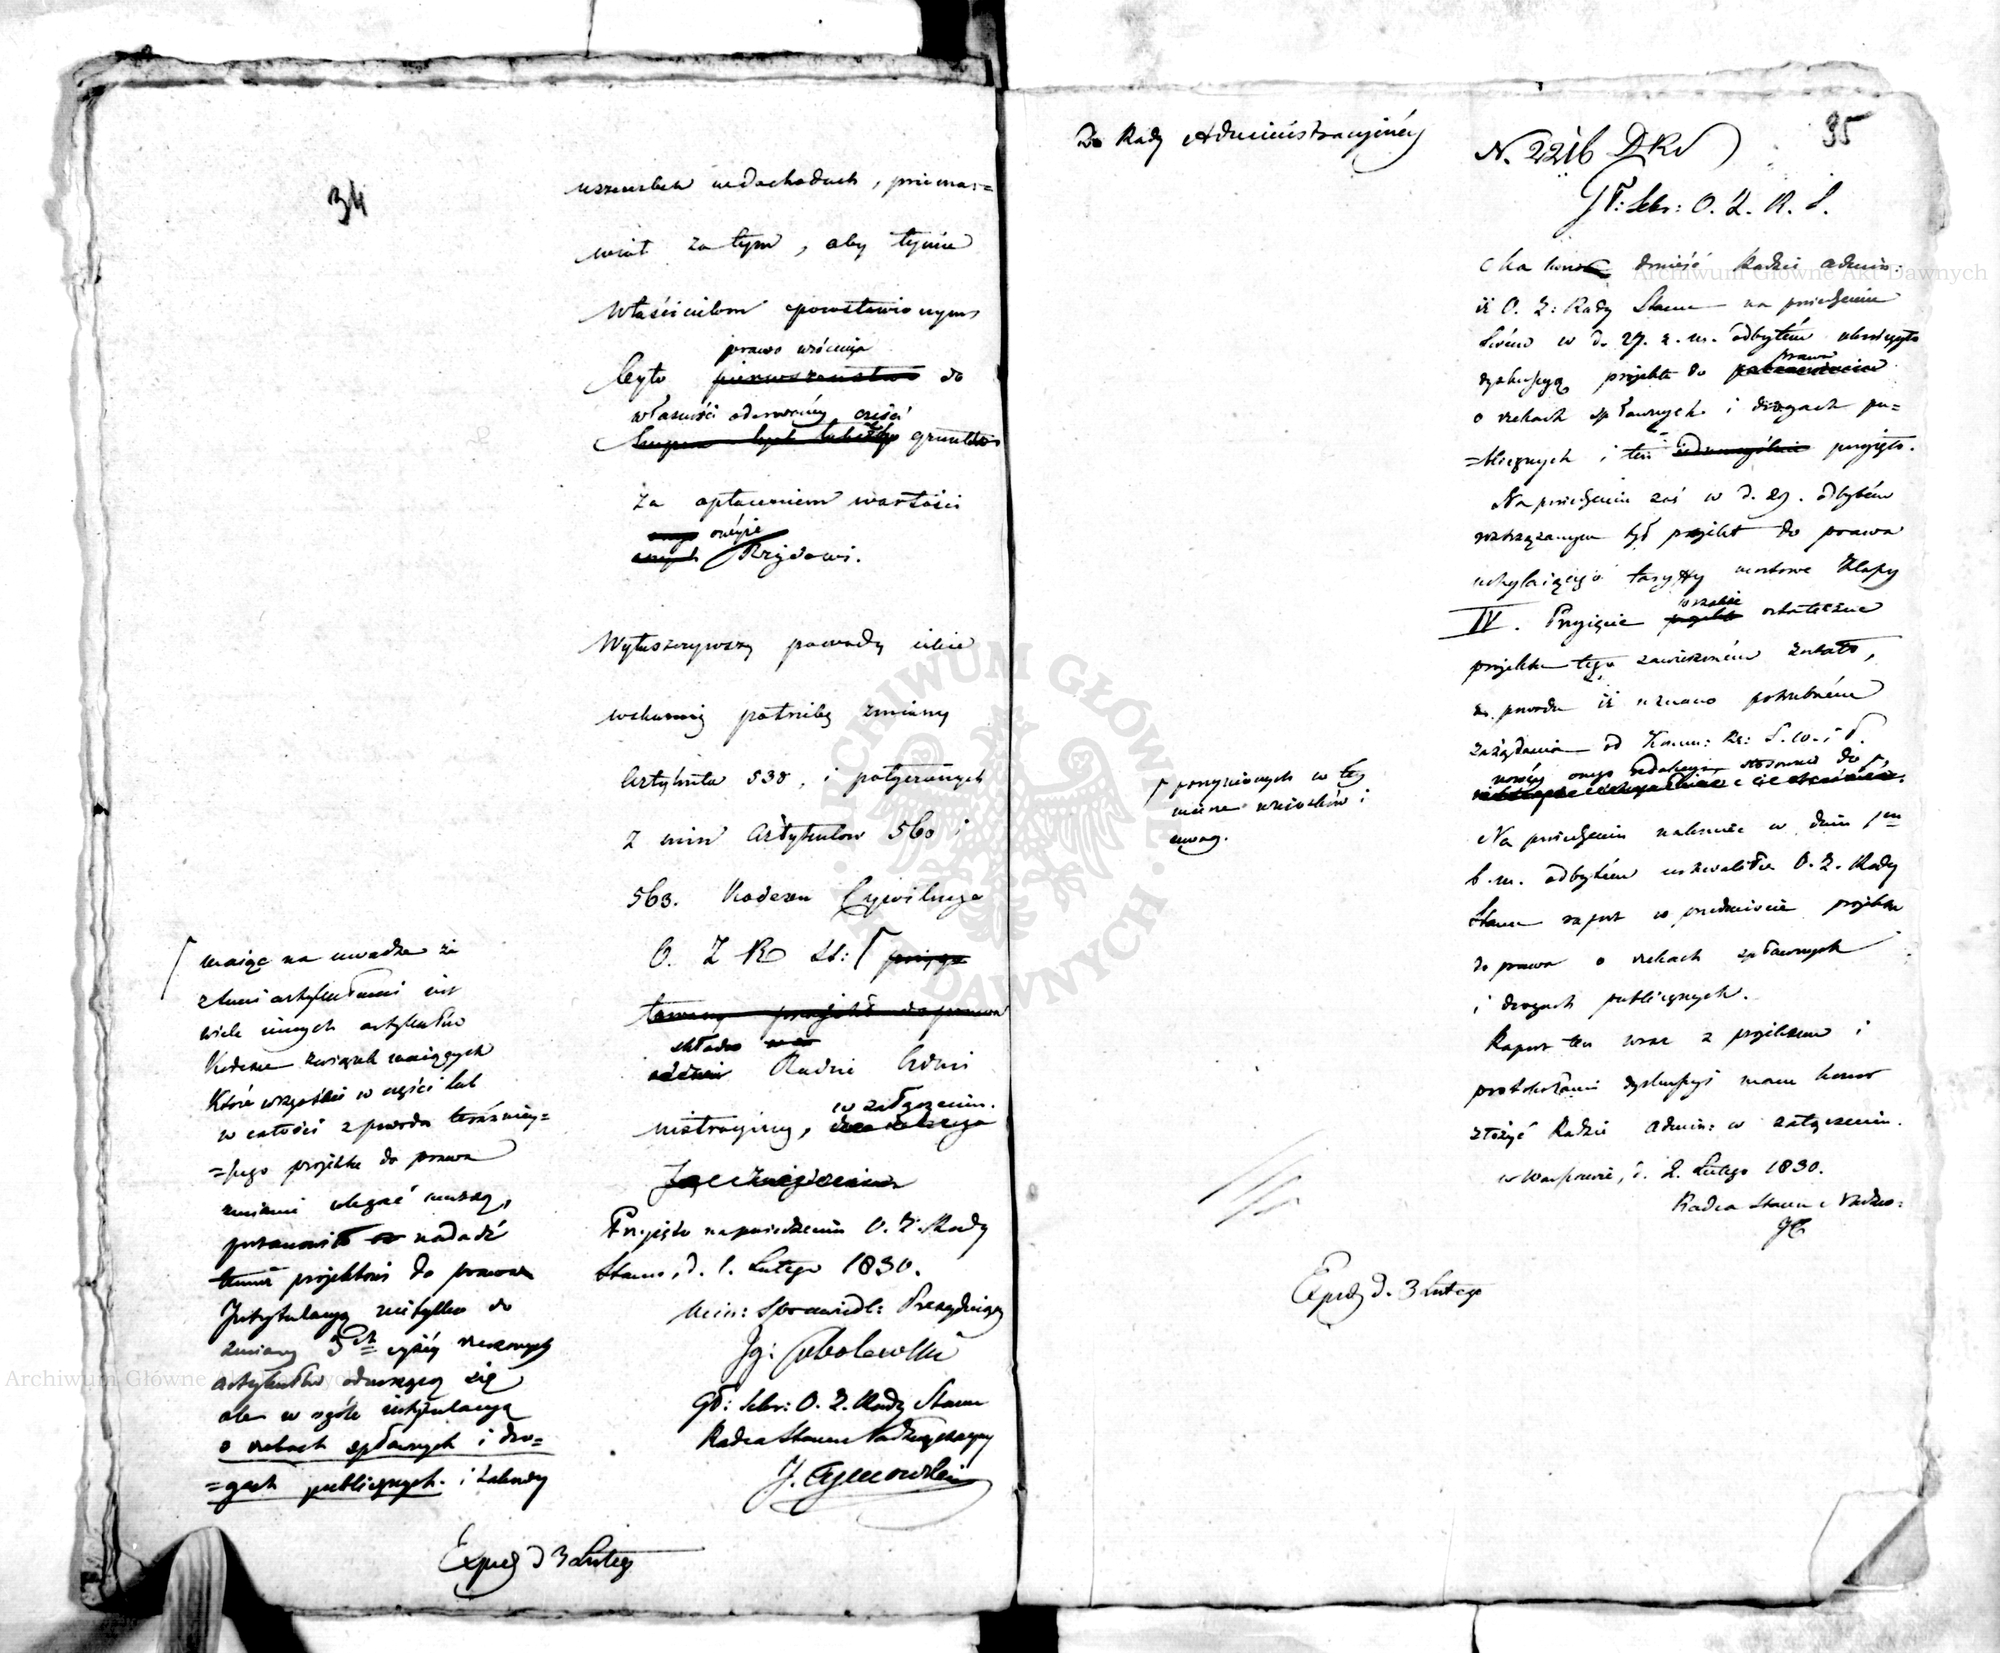 34
uszczerbku w dochodach, przema=
wiał za tym, aby tymże
właścicielom pozostawionym
prawo wrócenia
było pierwszeństwo do
własności oderwanéy części
gruntów
za opłaceniem wartości
onéyże
Rządowi.
Wyłuszczywszy powody iakie
wskazuią potrzebę zmiany
Artykułu 538, i połączonych
z nim Artykułów 560 i
563. Kodexu Cywilnego
O. Z. R. St: przygo
towany projekt do prawa
składa
Radzie Admi
w załączeniu.
nistracyiney,
Przyjęto na posiedzeniu O. Z. Rady
Stanu, d. 1. Lutego 1830.
Min: Sprawiedl: Prezyduiący
Ig: Sobolewski
Gł: Sekr: O. Z. Rady Stanu
Radca Stanu Nadzwyczayny
J. Tymowski
maiąc na uwadze że
z temi artykułami iest
wiele innych artykułów
Kodexu związek maiących
które wszystkie w części lub
w całości z powodu teraźniey=
=szego projektu do prawa
zmianie ulegać muszą,
postanowił nadadź
temuż projektowi do prawa
Intytulacyą nietylko do
zmiany 3ch wyżéy rzeczonych
artykułów odnoszącą się
ale w ogóle intytulacyą
o rzekach spławnych i dro=
=gach publicznych. i takowy
Exped d 3 Lutego
Do Rady Administracyinéy
35
N. 2216 DRS
Gł: Sekr: O. Z. R. S.
Ma honor donieść Radzie Admin:
iż O. Z: Rady Stanu na posiedzeniu
swém w d. 27. z. m. odbytém ukończyło
dyskusyą projektu do prawa
o rzekach spławnych i drogach pu=
=blicznych i ten jednomyślnie przyięło.
Na posiedzeniu zaś w d. 29. odbytém
roztrząsanym był projekt do prawa
uchylaiącego taryffy mostowe Klassy
IV. Przyięcie wszakże ostateczne
projektu tego zawieszoném zostało,
z powodu iż uznano potrzebném
zażądanie od Komm: Rz: S. W. i P.
nowéy onego redakcyi stosownie do
poczynionych w tey
mierze wniosków i
uwag.
Na posiedzeniu nakoniec w dniu 1m
b. m. odbytém uchwaliło O. Z. Rady
Stanu raport w przedmiocie projektu
do prawa o rzekach spławnych
i drogach publicznych.
Raport ten wraz z projektem i
protokołami dyskusyi mam honor
złożyć Radzie Admin: w załączeniu.
w Warszawie, d. 2. Lutego 1830.
Radca Stanu Nadzw:
Exped d. 3 Lutego
Archiwum Główne Akt Dawnych
ARCHIWUM GŁÓWNE AKT DAWNYCH
Archiwum Główne Akt Dawnych